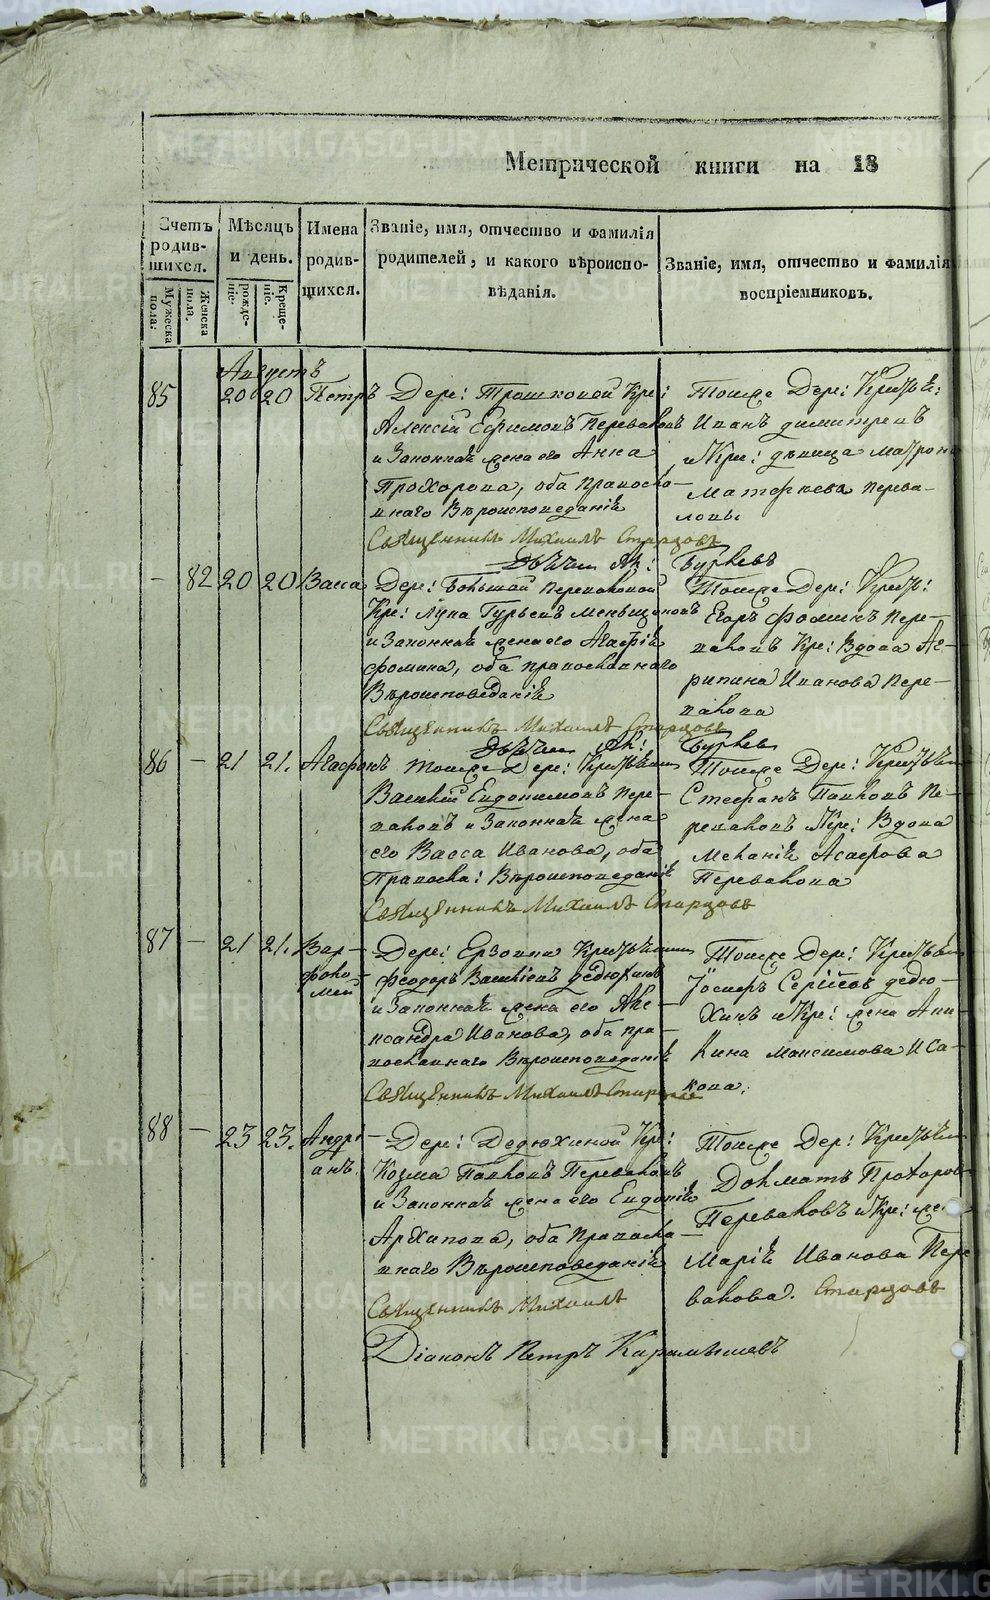 Метрической книги на 18
Счетъ родив-шихся.
Мужеска пола.
Женска пола.
Мѣсяцъ и день.
рожде-ніе.
Креще-ніе.
Имена родив-шихся.
Званіе, имя, отчество и фамилія
родителей, и какого вѣроиспо-
вѣданія.
Званіе, имя, отчество и фамилія
воспріемниковъ.
Августъ
85 20 20 Петръ
Дере: Трошковой Кре:
Алексій Ефимовъ Переваловъ
и Законная жена его Анна
Прохорова, оба Правосла-
внаго Вѣроисповеданія
Священникъ Михаилъ Старцовъ
Тойже Дер: Кресть:
Иванъ димитревъ
и Кре: дѣвица Матрона
Матфеева Перева-
ловы
– 82 20 20 Васса
Дере: Большой Переваловой
Кре: Лупа Гурьевъ Меньщиковъ
и Законная жена его Агафія
Фомина, оба православнаго
Вѣроисповеданія
Священникъ Михаилъ Старцовъ
Тойже Дер: Кресть:
Егоръ Фоминъ Пере-
валовъ Кре: Вдова Аг-
рипина Иванова Пере-
валова
86 – 21 21. Агафонъ
Тойже Дере: Крестьянинъ
Василій Евдокимовъ Пере-
валовъ и Законная жена
его Васса Иванова, оба
Правосла: Вѣроисповеданія
Священникъ Михаилъ Старцовъ
Тойже Дер: Крестьянинъ
Стефанъ Павловъ Пе-
реваловъ и Кре: Вдова
Меланія Агафова
Перевалова
87 – 21 21. Вар-
фоло-
мей
Дере: Ерзовки Крестьянинъ
Феодоръ Васильевъ дѣдюхинъ
и Законная жена его Але-
ксандра Иванова, оба пра-
вославнаго Вѣроисповеданія
Священникъ Михаилъ Старцовъ
Тойже Дер: Крестьянинъ
Іосифъ Сергѣевъ дедю-
хинъ и Кре: жена Аки-
лина Максимова Иса-
кова.
88 – 23 23. Андрі-
анъ.
Дере: Дедюхиной Кре:
Козма Павловъ Переваловъ
и Законная жена его Евдокія
Архипова, оба Правосла-
внаго Вѣроисповеданія
Священникъ Михаилъ Старцовъ
Тойже Дер: Крестьянинъ
Долматъ Прохоровъ
Переваловъ и Кре: же
Марія Иванова Пере
валова.
Діаконъ Петръ
METRIKI.GASO-URAL.RU